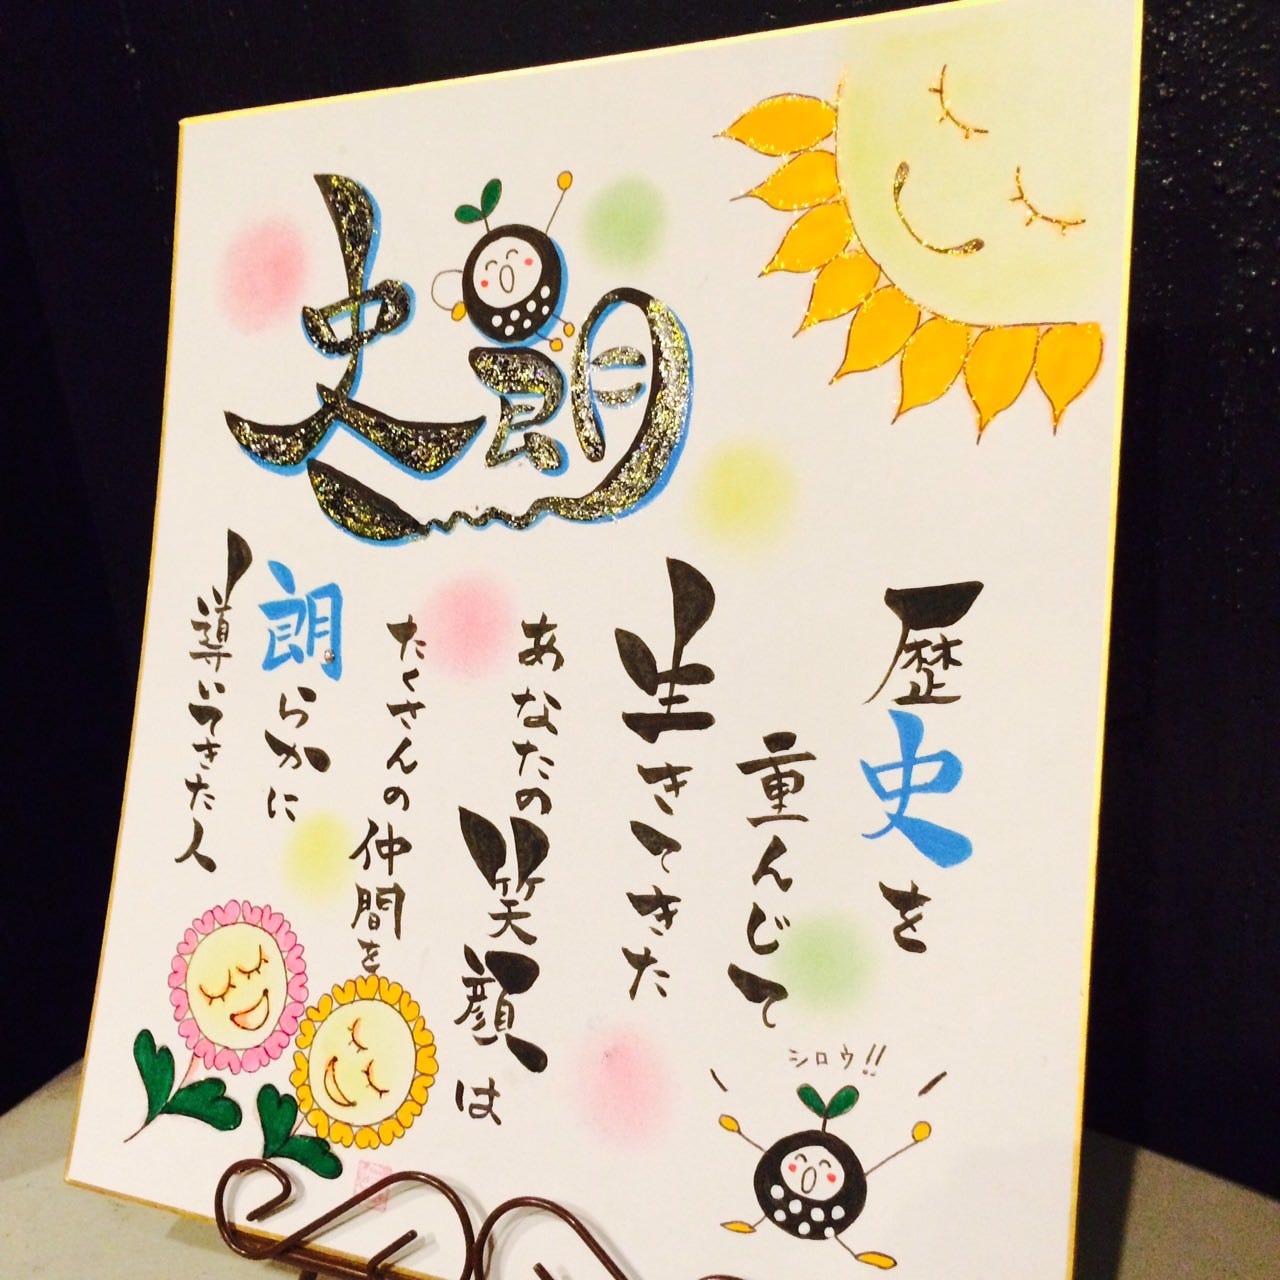 史朗
歴史を
重んじて
生きてきた
あなたの
笑顔は
たくさんの
仲間を
朗らかに
導いてきた人
シロウ!!